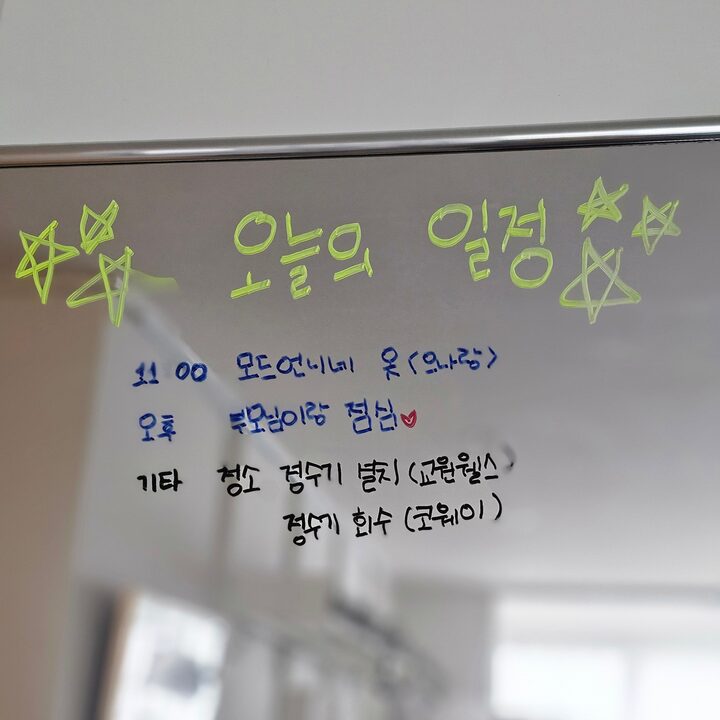 오늘의 일정
11 00 모드언니네 옷 <오나랑>
오후 부모님이랑 점심
기타 청소 정수기 설치 (교원웰스)
정수기 회수 (코웨이)